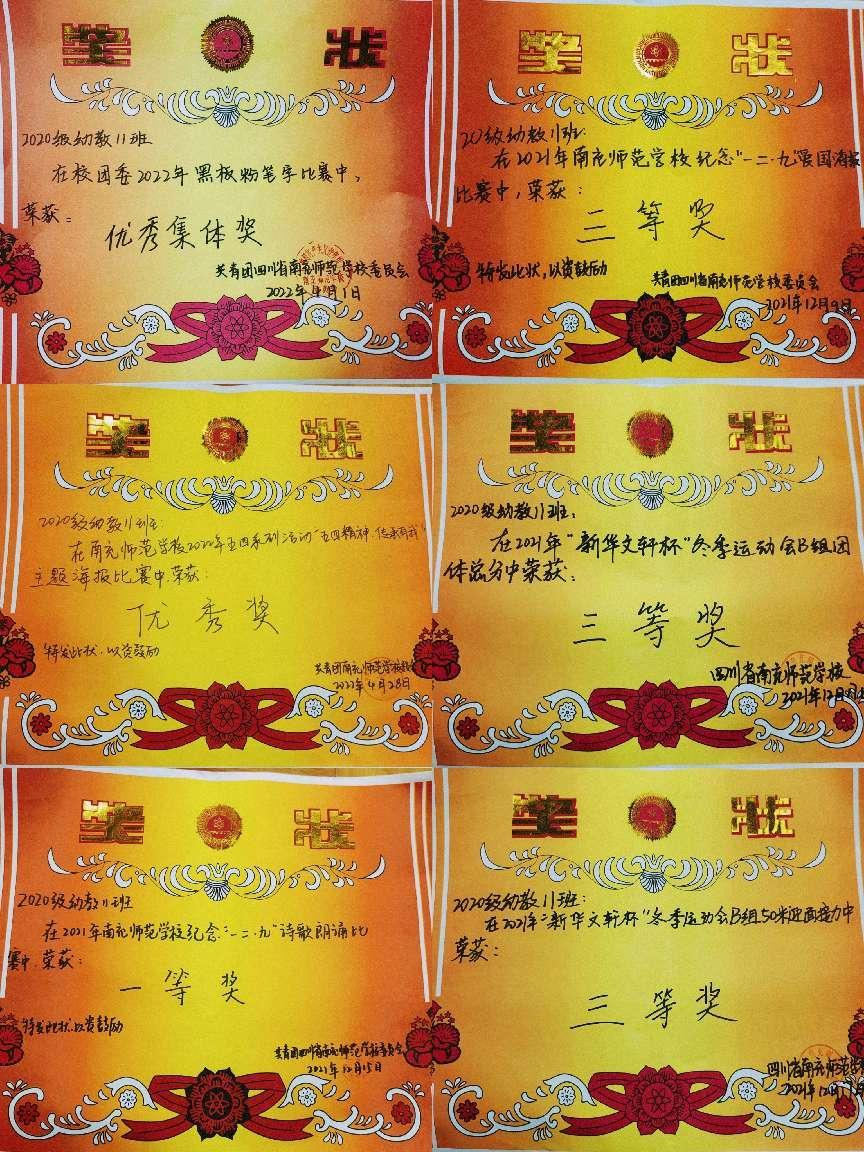 奖状
2020级幼教11班
在校团委2022年黑板粉笔字比赛中,
荣获:
优秀集体奖
共青团四川省南充师范学校委员会
2022年4月1日
奖状
20级幼教11班:
在2021年南充师范学校纪念“一二·九”爱国海报
比赛中,荣获:
三等奖
特发此状,以资鼓励
共青团四川省南充师范学校委员会
2021年12月9日
奖状
2020级幼教11班:
在南充师范学校2022年五四系列活动“五四精神·传承有我”
主题海报比赛中,荣获:
优秀奖
特发此状,以资鼓励
共青团南充师范学校
2022年4月28日
奖状
2020级幼教11班:
在2021年“新华文轩杯”冬季运动会B组团
体总分中荣获:
三等奖
四川省南充师范学校
2021年12月
奖状
2020级幼教11班
在2021年南充师范学校纪念“一二·九”诗歌朗诵比
赛中,荣获:
一等奖
特发此状,以资鼓励
共青团四川省南充师范学校委员会
2021年12月15日
奖状
2020级幼教11班:
在2021年“新华文轩杯”冬季运动会B组50米迎面接力中
荣获:
三等奖
四川省南充师范学
2021年12月